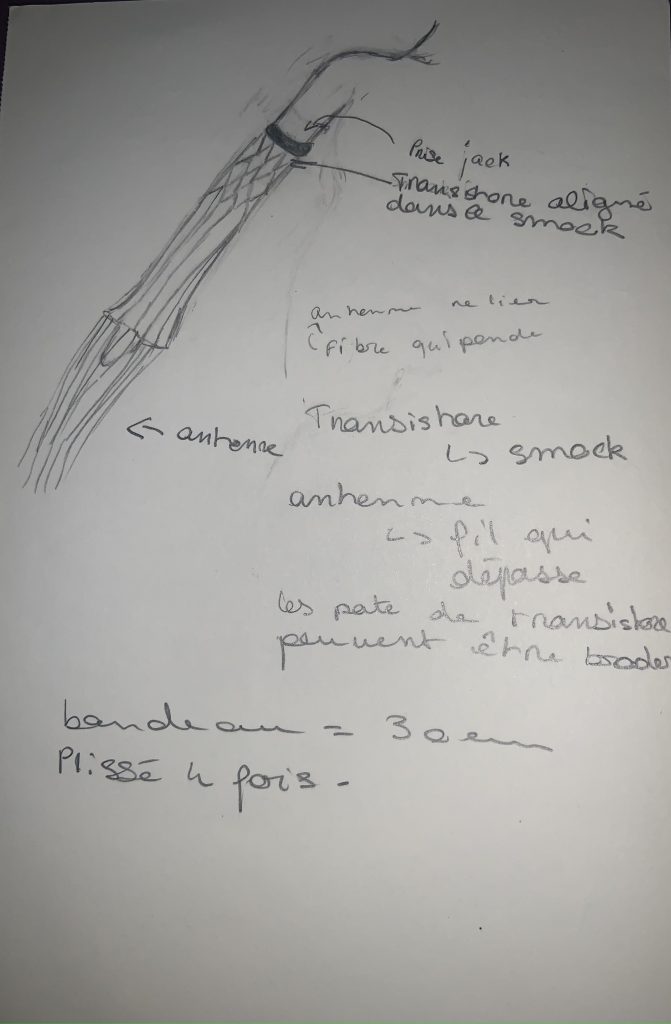 Prise jack
Transistore aligné
dans le smock
antenne relier
à fibre qui pende
← antenne
Transistore
↳ smock
antenne
↳ fil qui
dépasse
les pate de transistore
peuvent être broder
bandeau = 30 cm
Plissé 4 fois -